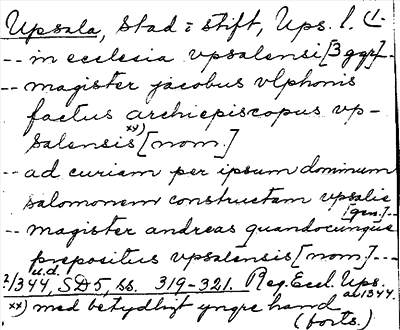 Upsala, stad : stift, Ups. l. (1.
-- in ecclesia vpsalensi [3 ggr] --
-- magister jacobus vlphonis
factus archiepiscopus vp-
salensis xx) [nom.]
-- ad curiam per ipsum dominum
salomonem constructam vpsalie
[gen.] --
-- magister andreas quandocunque
prepositus vpsalensis [nom.] ---
u.d.
?/1344, SD5, ss. 319-321. Reg. Eccl. Ups.
ab 1344.
xx) med betydligt yngre hand
(forts.)